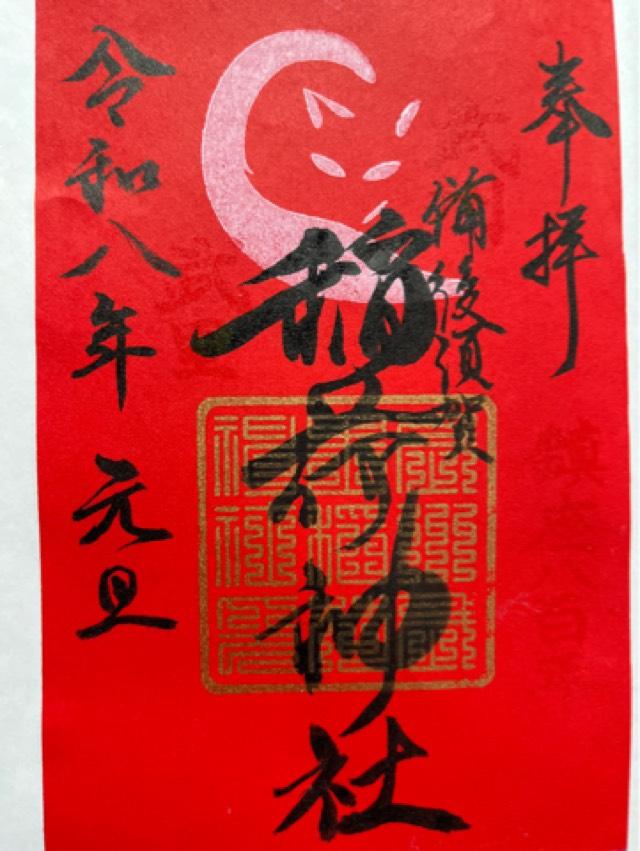 奉拝
備後須賀
稲荷神社
令和八年 元旦